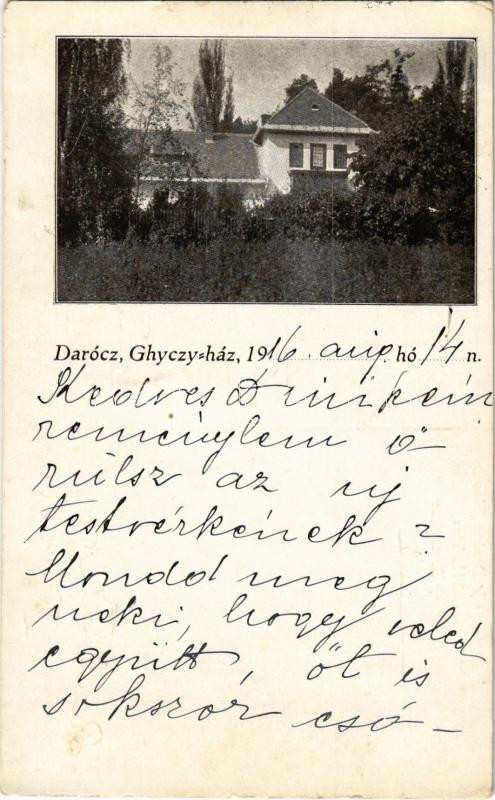 Darócz, Ghyczy-ház, 1916. aug. hó 14 n.
Kedves Dundikém
remenylem ö-
rülsz az uj
testvérkének?
Mondd meg
neki, hogy veled
együtt, öt is
sokszor csó-